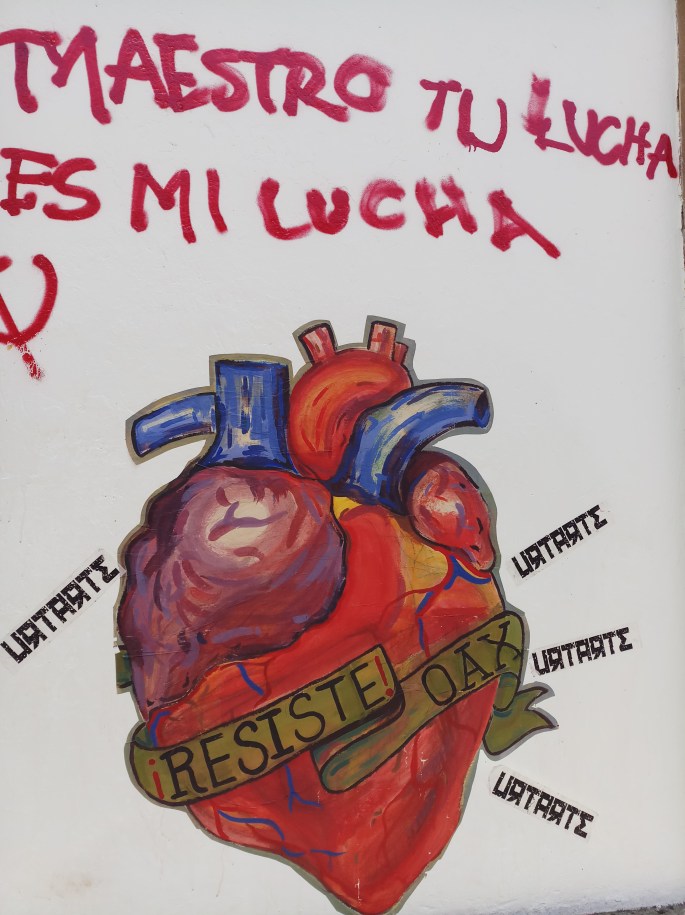 MAESTRO TU LUCHA
ES MI LUCHA
¡RESISTE! OAX
URTARTE
URTARTE
URTARTE
URTARTE